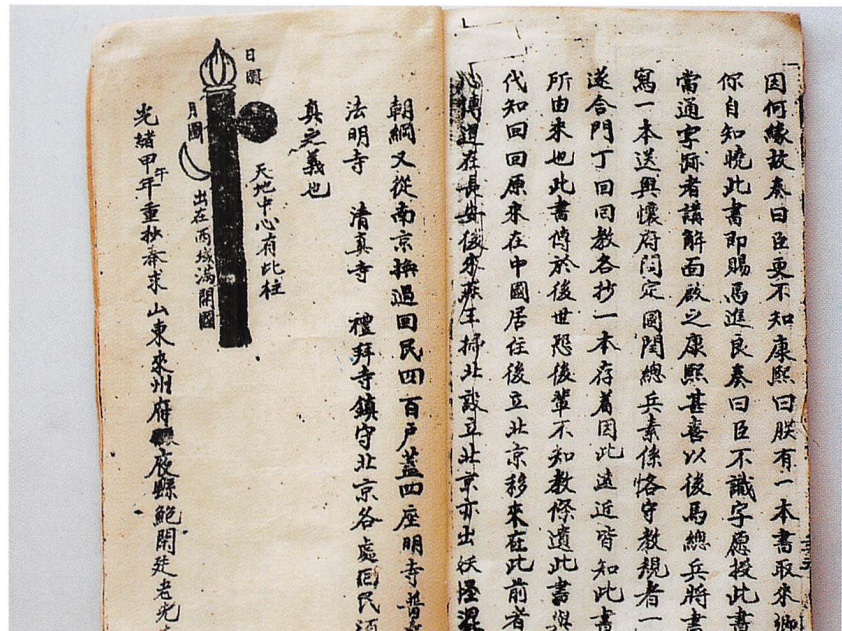 因何緣故奏曰臣更不知康熙曰朕有一本書取來卿
你自知曉此書即賜馬進良奏曰臣不識字愿授此書
當通字昕者講解面啟之康熙甚喜以後馬總兵將書
寫一本送與懷府同定國閏總兵素係恪守教規者一
遂合門丁回回教各抄一本存着因此遠近皆知此書
所由來也此書傳於後世恐後輩不知教條遺此書與
代知回回原來在中國居住後立北京移來在此前者
傳道在長安後來燕王掃北設立北京亦出妖怪混
朝綱又從南京 過回民四百户蓋四座明寺普
法明寺 清真寺 禮拜寺鎮守北京各處回民
真之義也
日圓
天地中心有此柱
月圓
出在西域滿開國
光緒甲午年重抄奉求山東萊州府 夜縣鮑開廷老